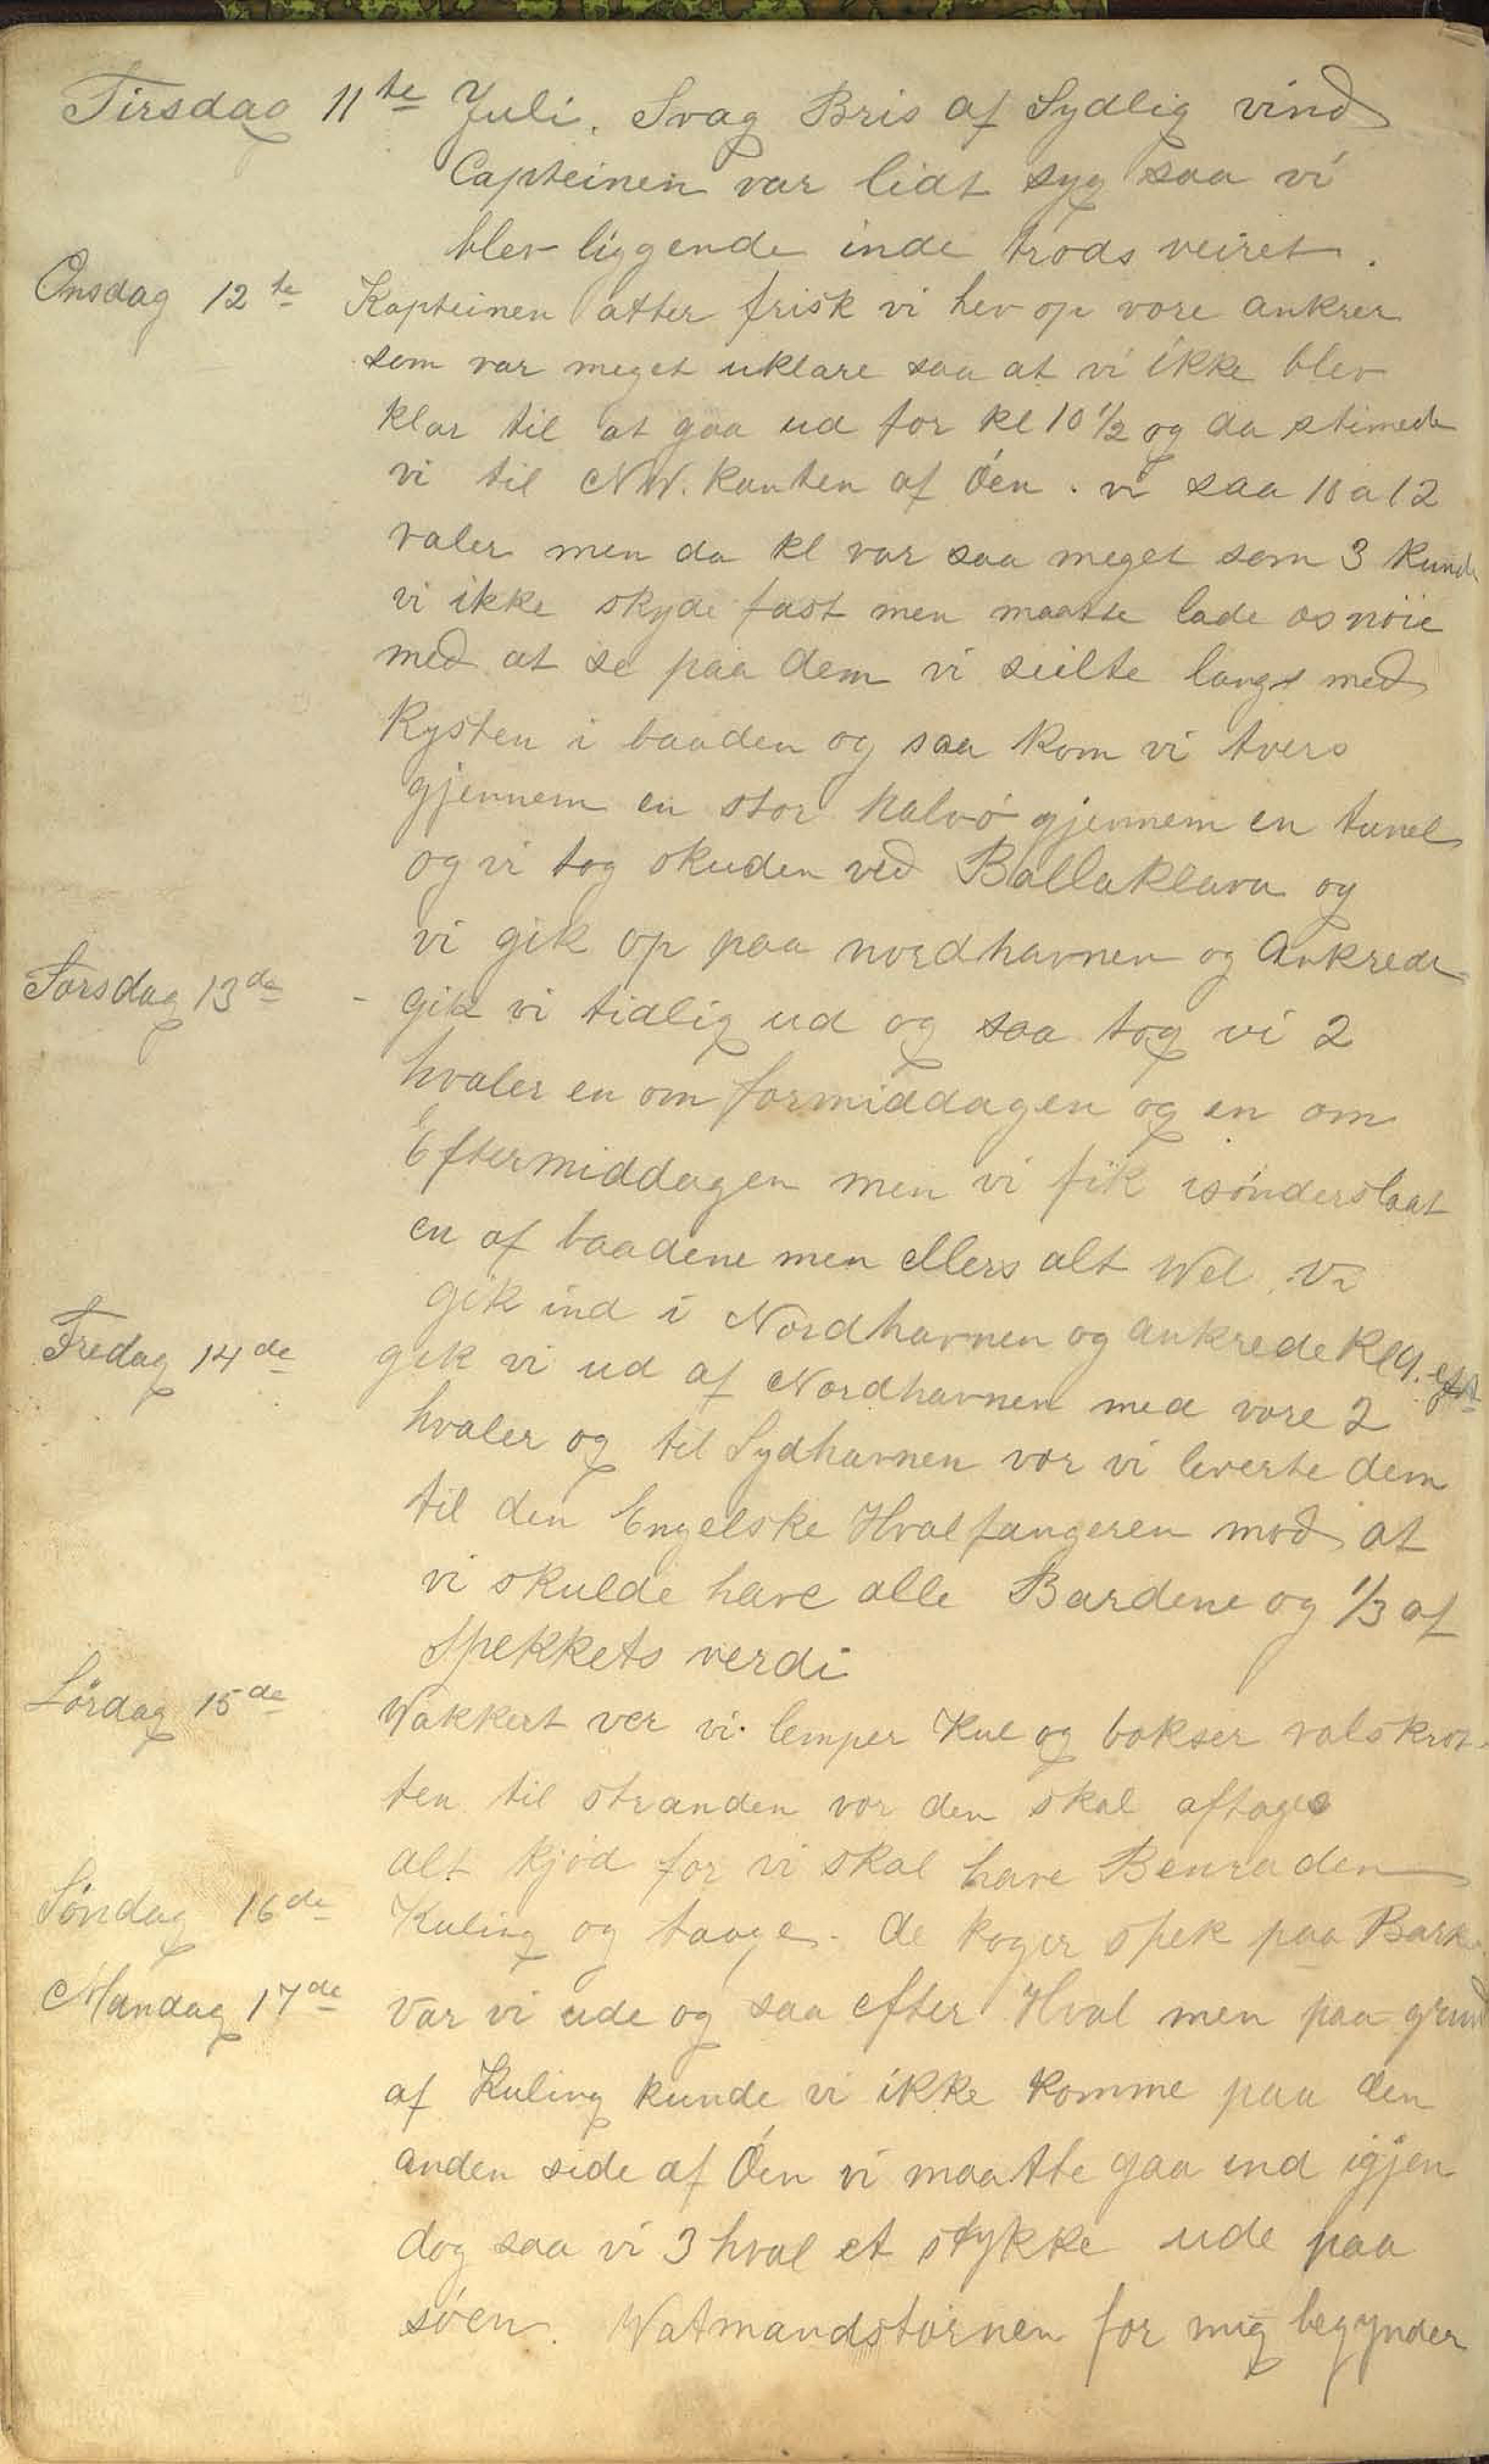 Tirsdag 11te Juli. Svag Bris af Sydlig vind
Capteinen var lidt syg saa vi
blev liggende inde trods veiret.
Onsdag 12te Kapteinen atter frisk vi hev op vore ankrer
som var meget uklare saa at vi ikke blev
klar til at gaa ud for kl 10 1/2 og da stimede
vi til NW. kanten af Øen. vi saa 10 a 12
valer men da kl var saa meget som 3 kunde
vi ikke skyde fast men maatte lade os nøie
med at se paa dem vi seilte langs med
Kysten i baaden og saa kom vi tvers
gjennem en stor halvø gjennem en tunel
og vi tog skuden ved Ballaklava og
vi gik op paa nordhavnen og Ankrede
Torsdag 13de - gik vi tidlig ud og saa tog vi 2
hvaler en om formiddagen og en om
Eftermiddagen men vi fik isønderslaat
en af baadene men ellers alt Wel. Vi
gik ind i Nordhavnen og ankrede Kl 9. eft
Fredag 14de gik vi ud af Nordhavnen med vore 2
hvaler og til Sydhavnen vor vi leverte dem
til den Engelske Hvalfangeren mod at
vi skulde have alle Bardene og 1/3 af
Spekkets verdi
Lørdag 15de Wakkert ver vi lemper Kul og bokser valskrot-
ten til stranden vor den skal aftages
alt kjød for vi skal have Benraden
Søndag 16de Kuling og taage. de koger spek paa Bark.
Mandag 17de Var vi ude og saa efter Hval men paa grund
af Kuling kunde vi ikke komme paa den
anden side af Øen vi maatte gaa ind igjen
dog saa vi 3 hval et stykke ude paa
søen. Watmandstørnen for mig begynder